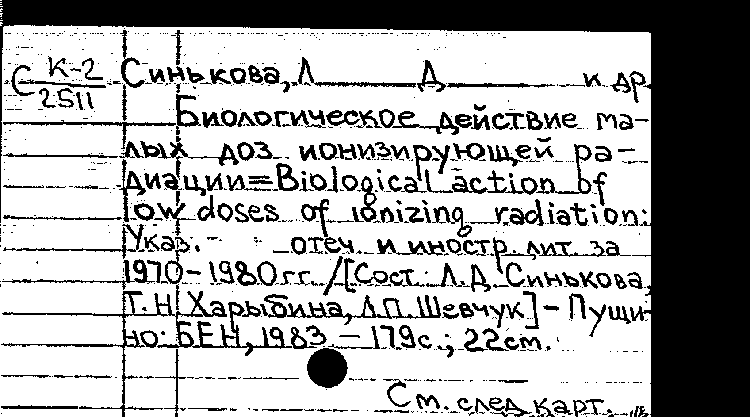 С К-2
2511
Синькова, Л Д и др.
Биологическое действие ма-
лых доз ионизирующей ра-
диации=Biological action of
low doses of ionizing radiation:
Указ. отеч. и иностр. лит. за
1970-1980гг. /[Сост. Л.Д. Синькова,
Т.Н. Харыбина, Л.П. Шевчук] - Пущи-
но: БЕН, 1983. - 179с.; 22см.
См. след. карт.